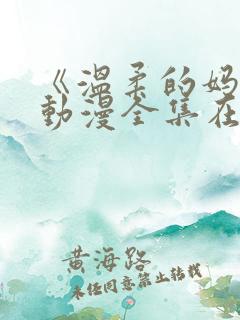 《温柔的妈
動漫全集在
黄海路
未经同意禁止转载